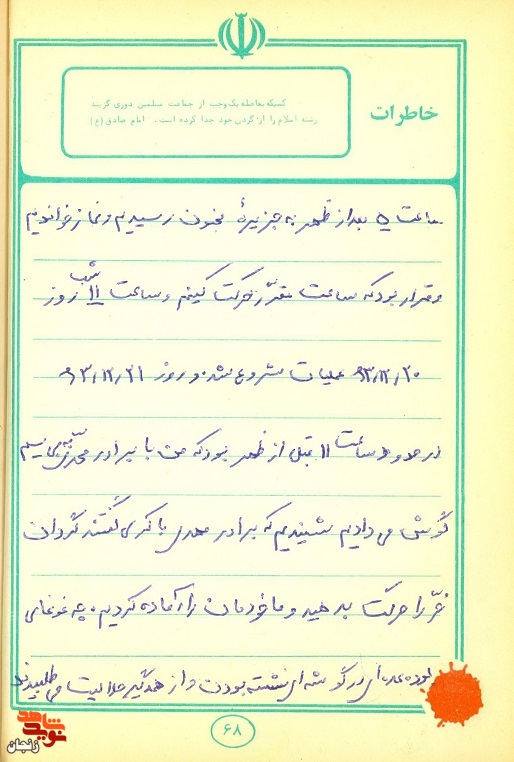 خاطرات
کسیکه بفاصله یک وجب از جماعت مسلمین دوری گزیند
رشته اسلام را از گردن خود جدا کرده است. امام صادق (ع)
ساعت ۵ بعد از ظهر به جزیرهٔ مجنون رسیدیم و نماز خواندیم
و قرار بود که ساعت مقرّر حرکت کنیم و ساعت ۱۱ شب روز
۶۳/۱۲/۲۰ عملیات شروع شد. و روز ۶۳/۱۲/۲۱
در حدود ساعت ۱۱ قبل از ظهر بود که من با برادر به بی سیم
گوش می دادیم شنیدیم که برادر مهدی باکری گفتند گردان
حرّ را حرکت بدهید و ما خودمان را آماده کردیم. چه غوغای
بود. عده ای در گوشه ای نشسته بودن و از همدیگر حلالیت می طلبیدند
۶۸
نوید شاهد
زنجان